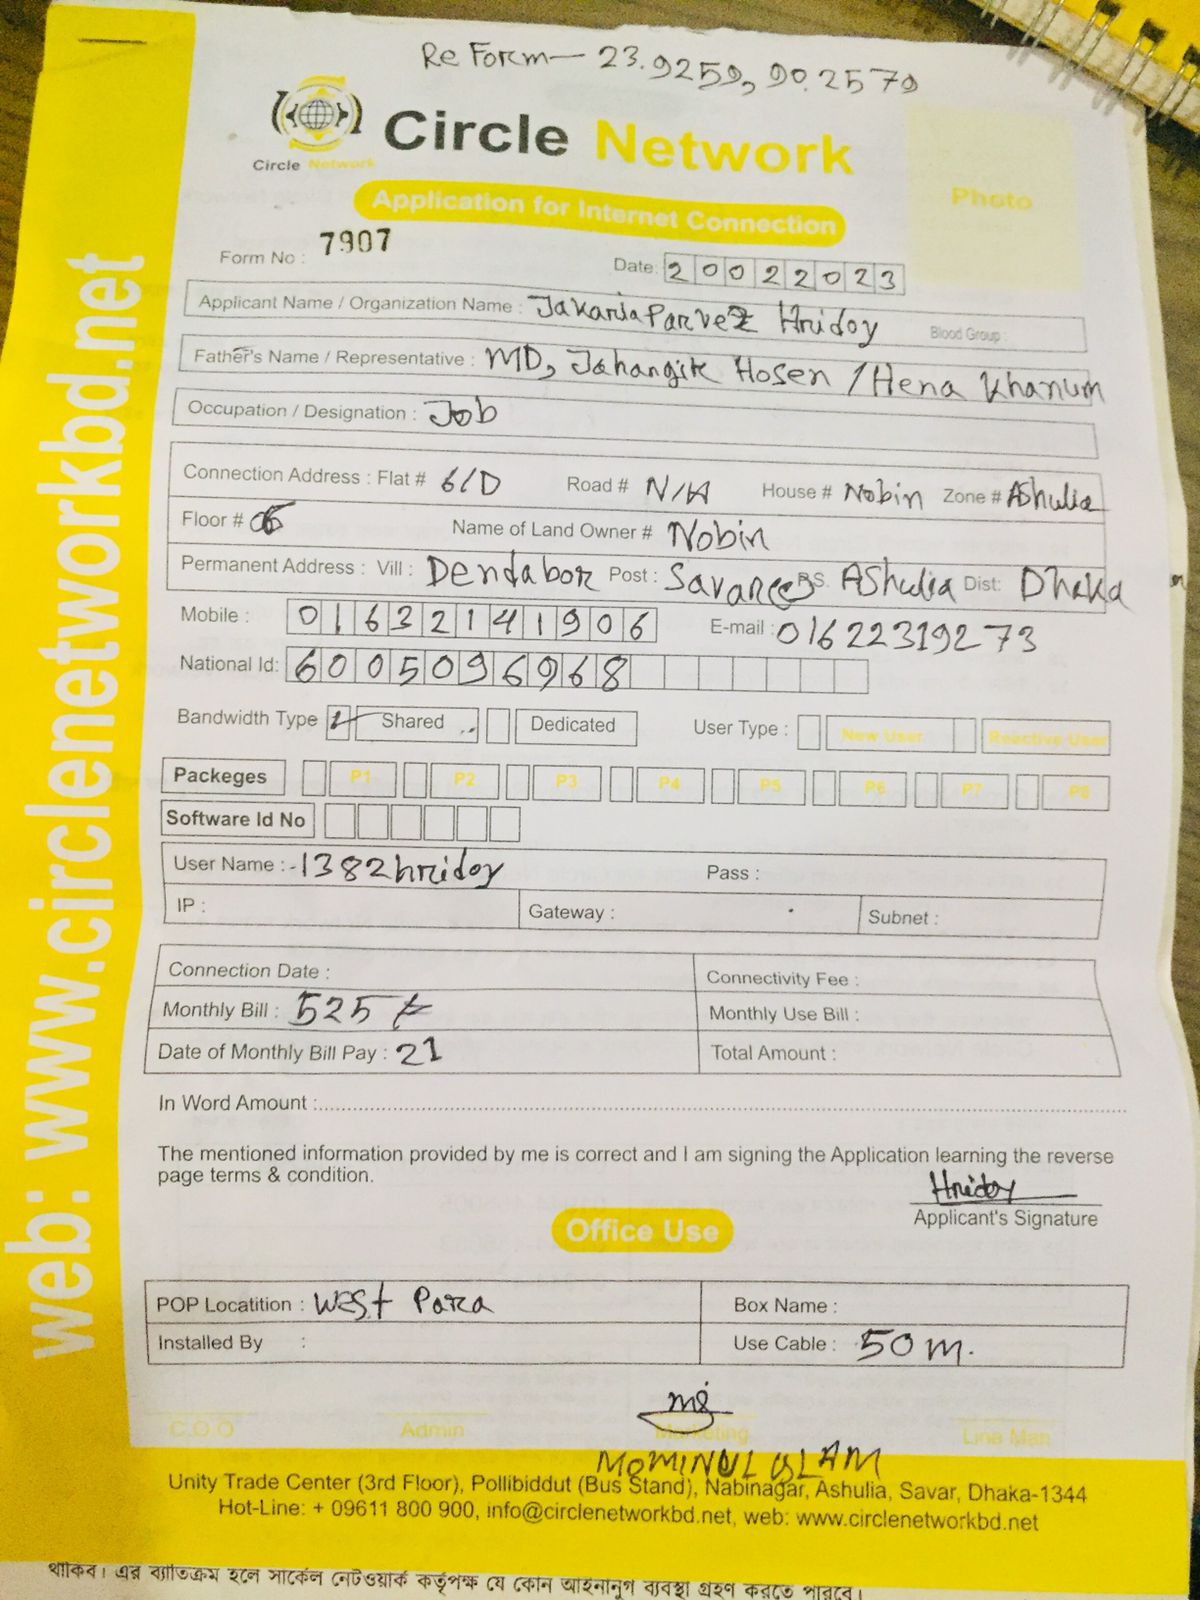 Re Form — 23.9259, 90.2579
Circle Network
Circle Network
Photo
Application for Internet Connection
Form No : 7907
Date: 20022023
Applicant Name / Organization Name : Jakaria Parvez Hridoy Blood Group :
Father's Name / Representative : MD, Jahangir Hosen / Hena Khanum
Occupation / Designation : Job
Connection Address : Flat # 6/D Road # N/A House # Nobin Zone # Ashulia
Floor # 06 Name of Land Owner # Nobin
Permanent Address : Vill : Dendabor Post : Savar P.S. Ashulia Dist: Dhaka
Mobile : 01632141906 E-mail : 01622319273
National Id: 6005096968
Bandwidth Type Shared Dedicated User Type : New User Reactive User
Packeges P1 P2 P3 P4 P5 P6 P7 P8
Software Id No
User Name : -1382hridoy Pass :
IP : Gateway : Subnet :
Connection Date : Connectivity Fee :
Monthly Bill : 525 Monthly Use Bill :
Date of Monthly Bill Pay : 21 Total Amount :
In Word Amount :
The mentioned information provided by me is correct and I am signing the Application learning the reverse
page terms & condition.
Hridoy
Applicant's Signature
Office Use
POP Locatition : West Para Box Name :
Installed By : Use Cable : 50 m.
C.O.O Admin Marketing Line Man
MOMINUL ISLAM
Unity Trade Center (3rd Floor), Pollibiddut (Bus Stand), Nabinagar, Ashulia, Savar, Dhaka-1344
Hot-Line: + 09611 800 900, info@circlenetworkbd.net, web: www.circlenetworkbd.net
থাকিব। এর ব্যাতিক্রম হলে সার্কেল নেটওয়ার্ক কর্তৃপক্ষ যে কোন আইনানুগ ব্যবস্থা গ্রহণ করতে পারবে।
web: www.circlenetworkbd.net